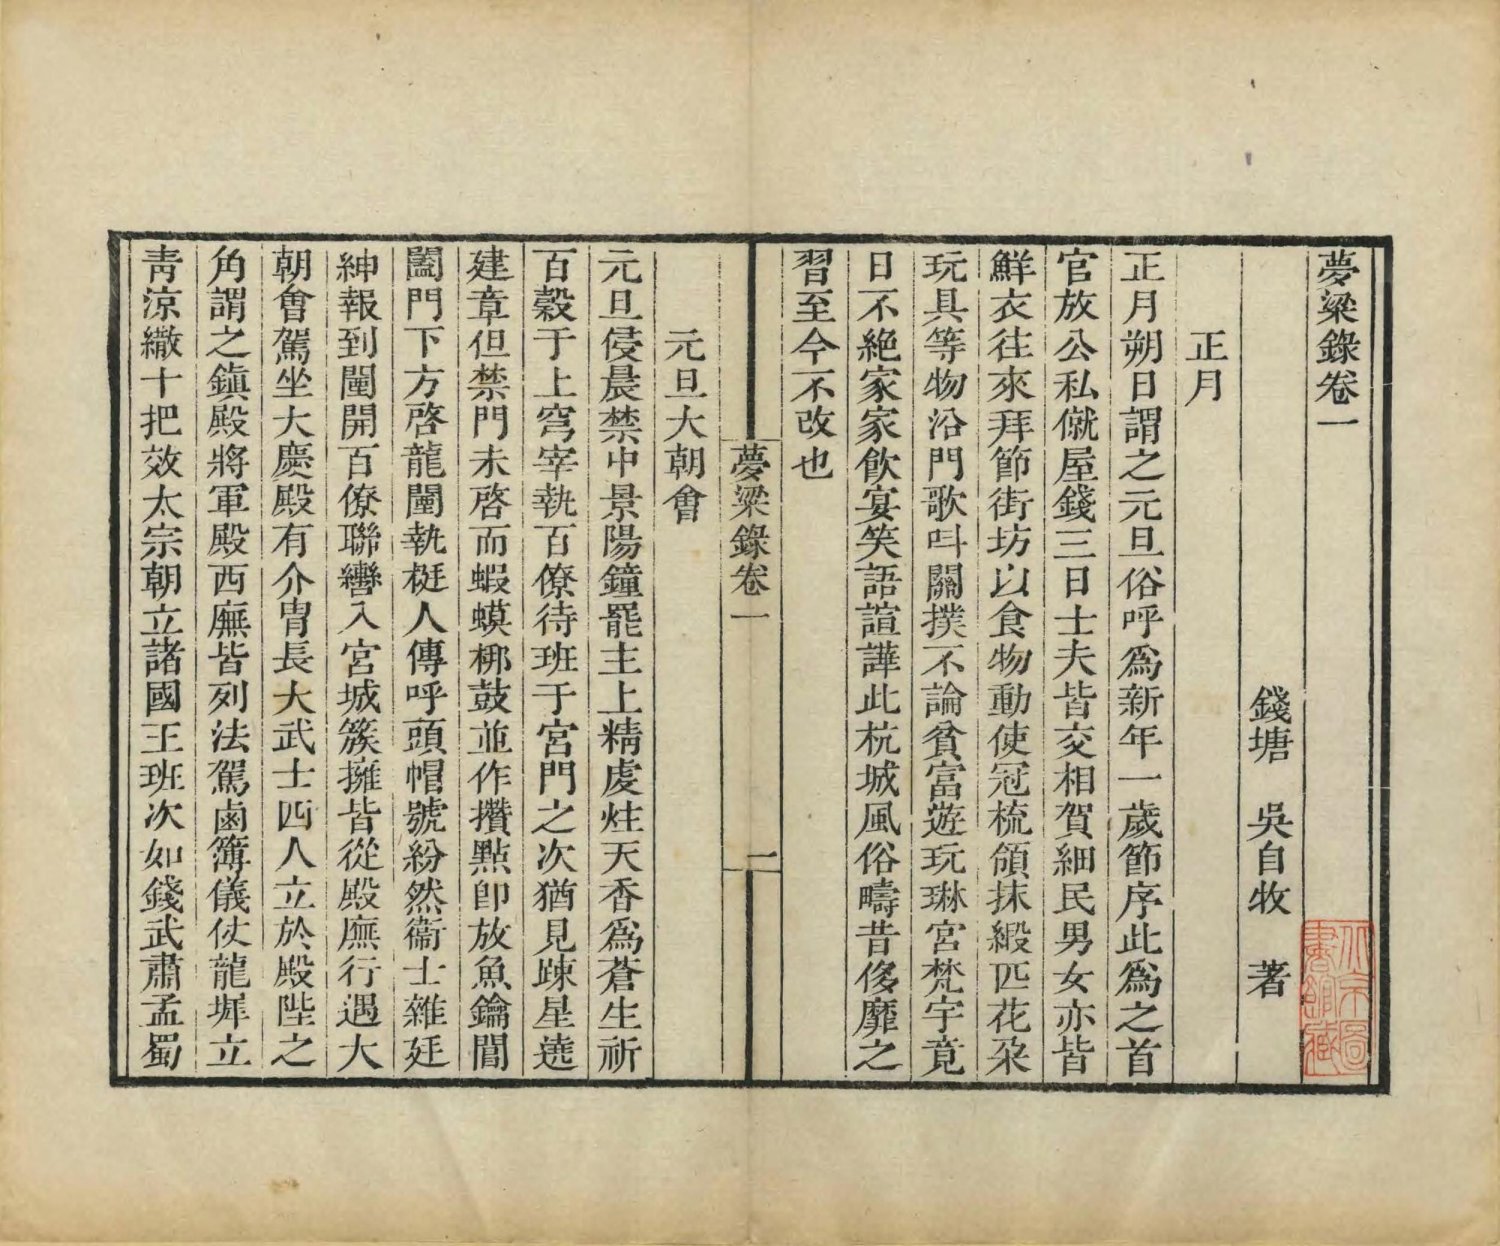 夢粱錄卷一
錢塘 吳自牧 著
正月
正月朔日謂之元旦俗呼爲新年一歲節序此爲之首
官放公私僦屋錢三日士夫皆交相賀細民男女亦皆
鮮衣往來拜節街坊以食物動使冠梳領抹緞匹花朶
玩具等物沿門歌叫關撲不論貧富遊玩琳宮梵宇竟
日不絕家家飲宴笑語諠譁此杭城風俗疇昔侈靡之
習至今不改也
夢粱錄卷一
一
元旦大朝會
元旦侵晨禁中景陽鐘罷主上精虔炷天香爲蒼生祈
百穀于上穹宰執百僚待班于宮門之次猶見踈星遶
建章但禁門未啓而蝦蟆梆鼓並作攢點卽放魚鑰閶
闔門下方啓龍闈執梃人傳呼頭帽號紛然衞士雜廷
紳報到闈開百僚聯轡入宮城簇擁皆從殿廡行遇大
朝會駕坐大慶殿有介冑長大武士四人立於殿陛之
角謂之鎮殿將軍殿西廡皆列法駕鹵簿儀仗龍墀立
靑涼繖十把效太宗朝立諸國王班次如錢武肅孟蜀